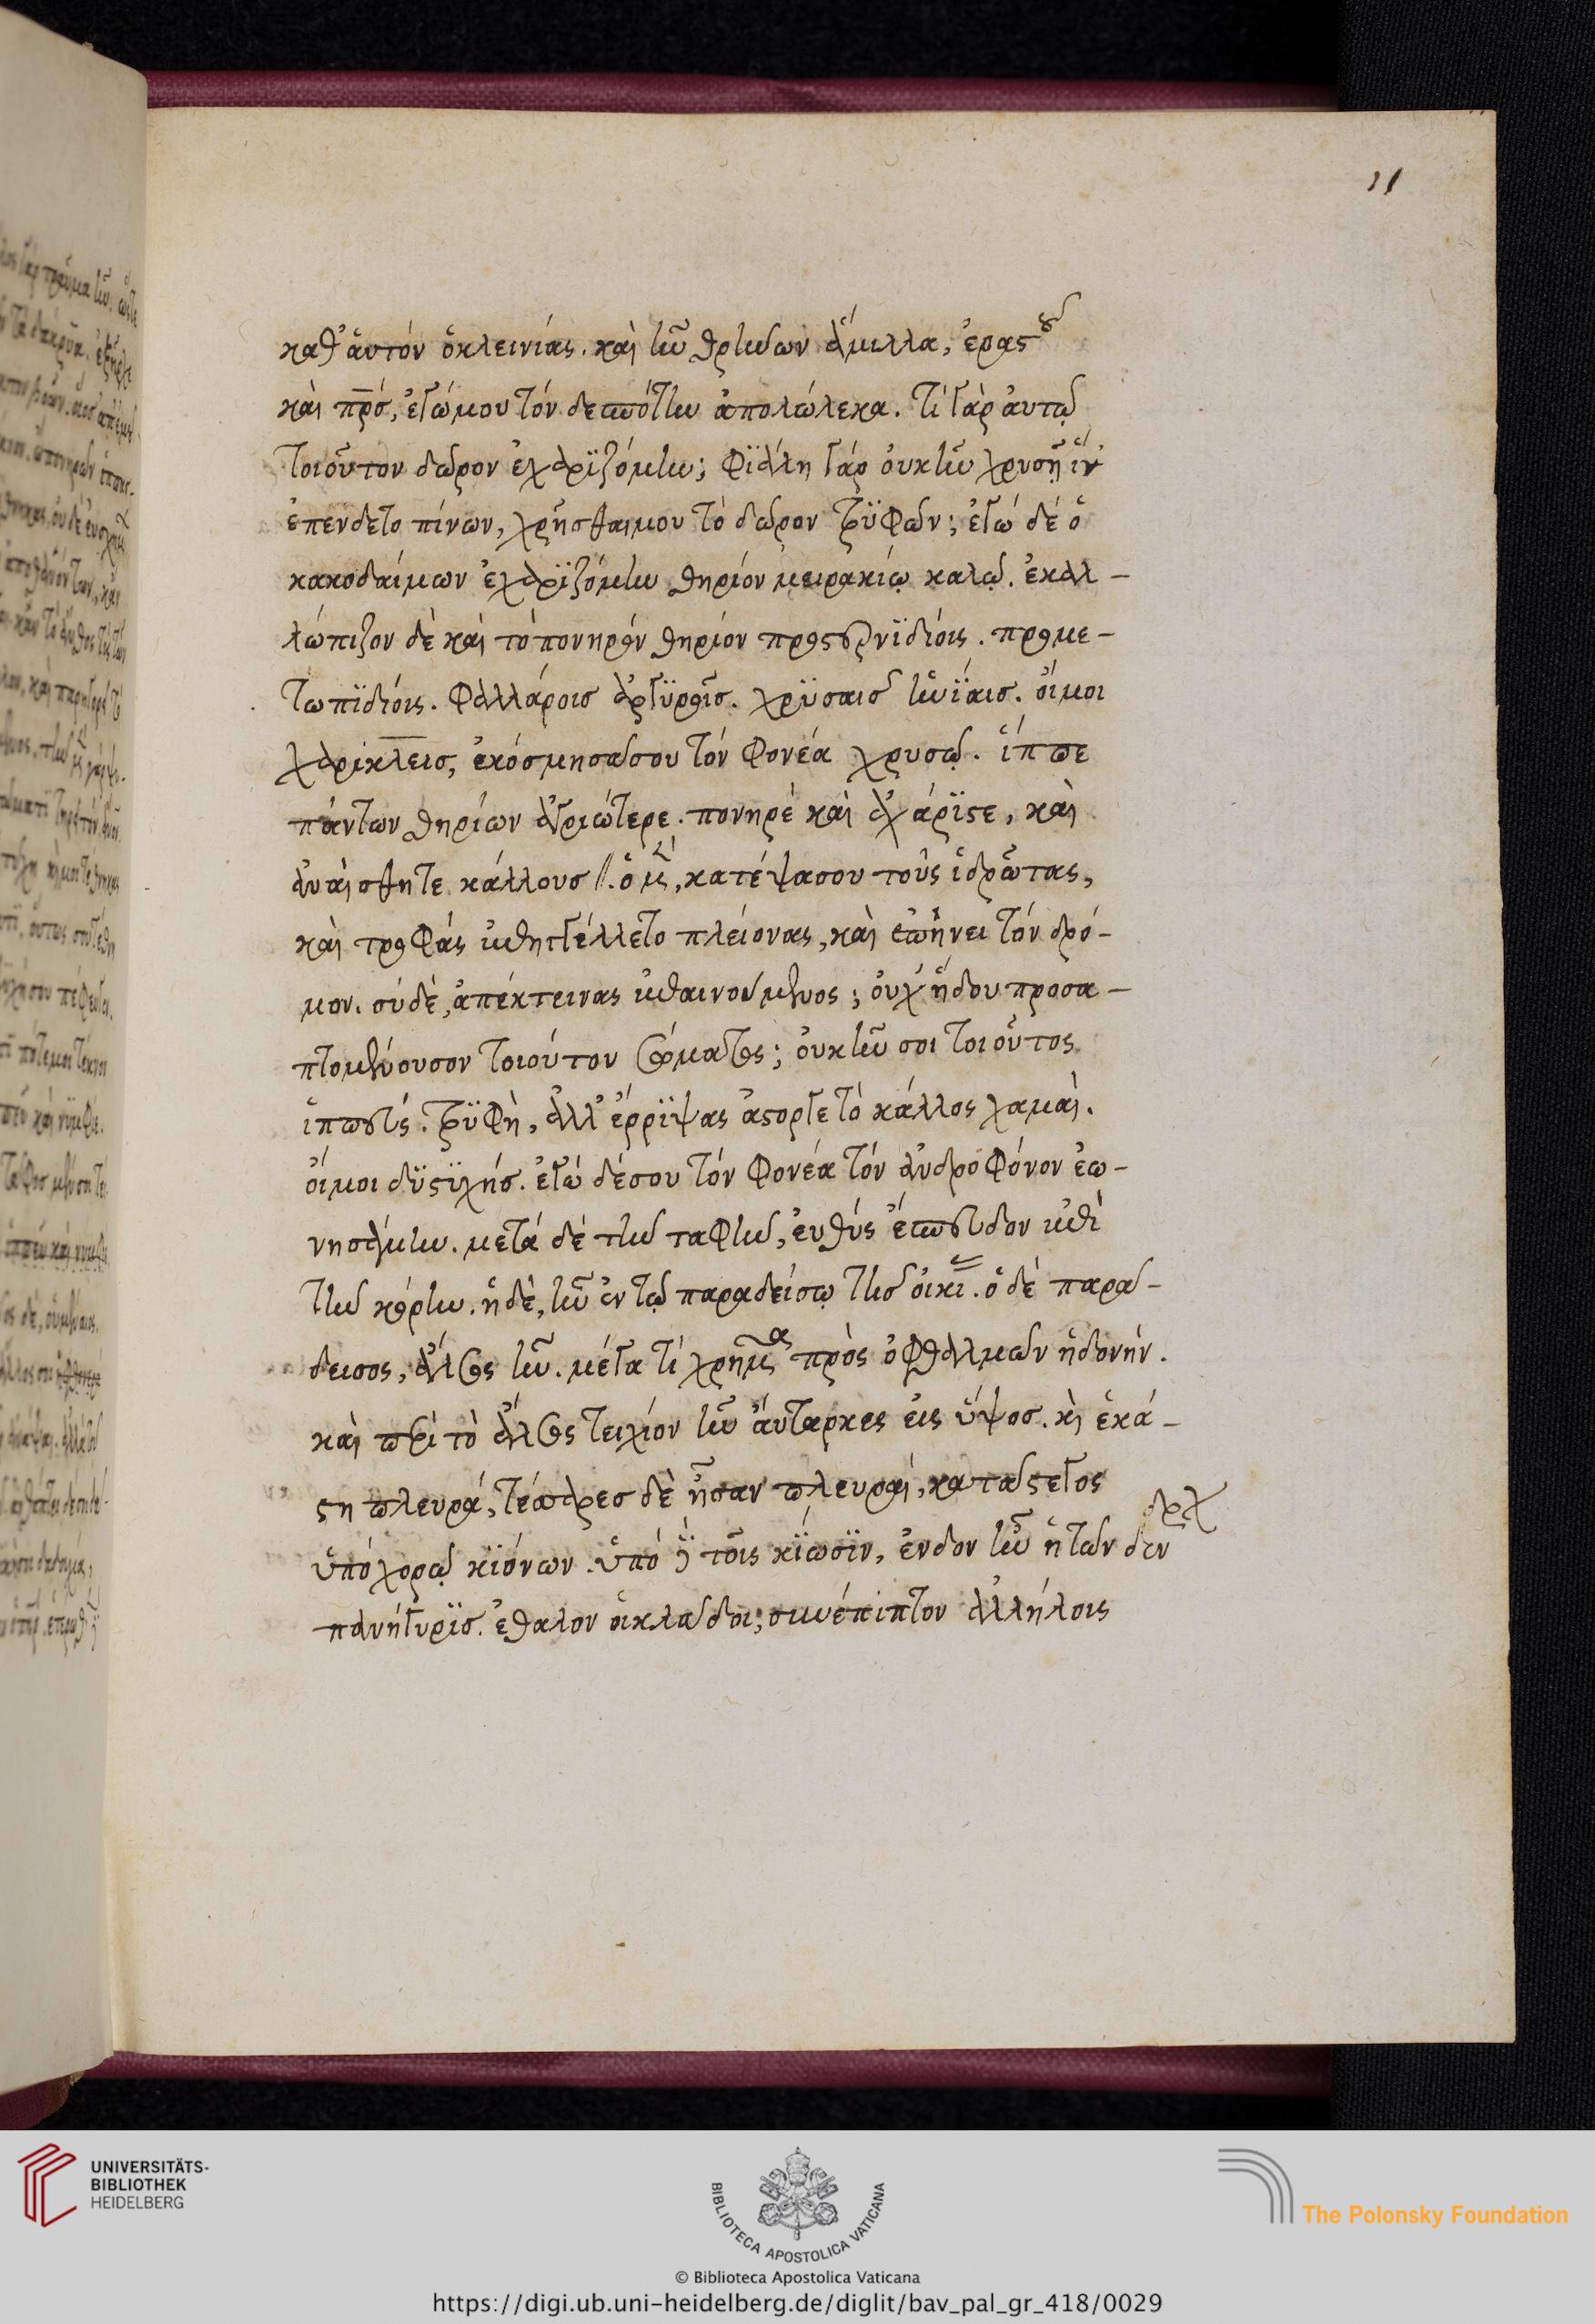 11
καθ' ἀυτόν ὁκλεινίας. καὶ ἦν θρήνων ἅμιλλα, ἐραστοῦ
καὶ πρσ, ἐγώμου τόν δεσπότην ἀπολώλεκα. τί γὰρ ἀυτῷ
τοιοῦτον δῶρον ἐχαρϊζόμην; φϊάλη γάρ ὀυκ ἦν χρυσῆ ἵν'
ἐπενδετο πίνων, χρῆσθαιμου τὸ δῶρον τρϋφῶν; ἐγώ δέ ὁ
κακοδαίμων ἐχαρϊζόμην θηρίον μειρακίῳ καλῷ. ἐκαλ-
λώπιζον δὲ καὶ τὸ πονηρόν θηρίον προστερνϊδίοις. προμε-
τωπϊδίοις. φαλλάροισ ἀργϋροῖσ. χρϋσαισ ἡνϊάισ. οἴμοι
χαρίκλεισ, ἐκόσμησασου τόν φονέα χρυσῷ. ἵππε
πάντων θηρίων ἀγριώτερε. πονηρὲ καὶ ἀχάρϊστε, καὶ
ἀναίσθητε κάλλουσ. ὁ μὲν, κατέψασου τοὺς ἱδρῶτας,
καὶ τροφάς ἐπηγγέλλετο πλείονας, καὶ ἐπῄνει τόν δρό-
μον. σύ δὲ, ἀπέκτεινας ἐπαινούμενος; ὀυχ' ἥδου προσα-
πτομένουσον τοιούτου σώματος; ὀυκ ἦν σοι τοιοῦτος
ἱππεύς. τρϋφὴ, ἀλλ' ἔρρϊψας ἄστοργε τὸ κάλλος χαμαὶ.
οἴμοι δϋστϋχήσ. ἐγὼ δέσου τόν φονέα τόν ἀνδροφόνον ἐω-
νησάμην. μετά δέ τὴν ταφὴν, ἐυθύς ἔσπευδον ἐπὶ
τὴν κόρην. ἡδὲ, ἦν ἐν τῷ παραδείσῳ τῆσ οἰκί. ὁ δέ παρα-
δεισος, ἄλσος ἦν. μέγα τί χρῆμα πρὸς ὀφθαλμῶν ἡδονήν.
καὶ περὶ τὸ ἄλσος τειχίον ἦν ἄυταρκες εἰς ὕψοσ. κὶ ἑκά-
στη πλευρά, τέσσαρεσ δὲ ἦσαν πλευραί, καταστεγος
ὑπὸ χορῷ κϊόνων. ὑπὸ δὲ τοῖς κϊόσϊν, ἔνδον ἦν ἡ τῶν δεν
δρχ
πανήγυρϊσ. ἔθαλον οἱκλάδοι; συνέπιπτον ἀλλήλοις
UNIVERSITÄTS-
BIBLIOTHEK
HEIDELBERG
BIBLIOTECA APOSTOLICA VATICANA
The Polonsky Foundation
© Biblioteca Apostolica Vaticana
https://digi.ub.uni-heidelberg.de/diglit/bav_pal_gr_418/0029